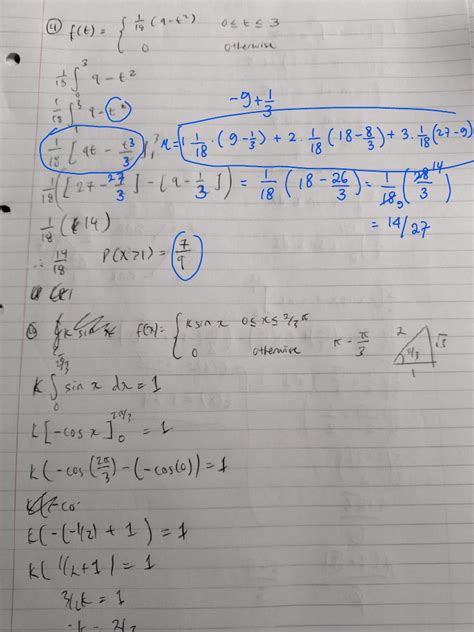 ④ f(t) = { 1/18 (9-t²) 0 ≤ t ≤ 3
0 otherwise
1/18 ∫₀³ 9 - t²
1/18 ∫₁³ 9 - t²
-9 + 1/3
1/18 [9t - t³/3]₁³
1/18 · (9 - 1/3) + 2 · 1/18 (18 - 8/3) + 3 · 1/18 (27 - 9)
1/18 ([27 - 27/3] - [9 - 1/3]) = 1/18 (18 - 26/3) = 1/18 (28/3) 14
9
1/18 (14) = 14/27
∴ 14/18 P(X>1) = 7/9
f(x) = { k sin x 0 ≤ x ≤ 2/3 π
0 otherwise
π - π/3
2 √3 π/3 1
k ∫₀^(2π/3) sin x dx = 1
k [-cos x]₀^(2π/3) = 1
k (-cos(2π/3) - (-cos(0)) = 1
k (-(-1/2) + 1) = 1
k (1/2 + 1) = 1
3/2 k = 1
k = 2/3